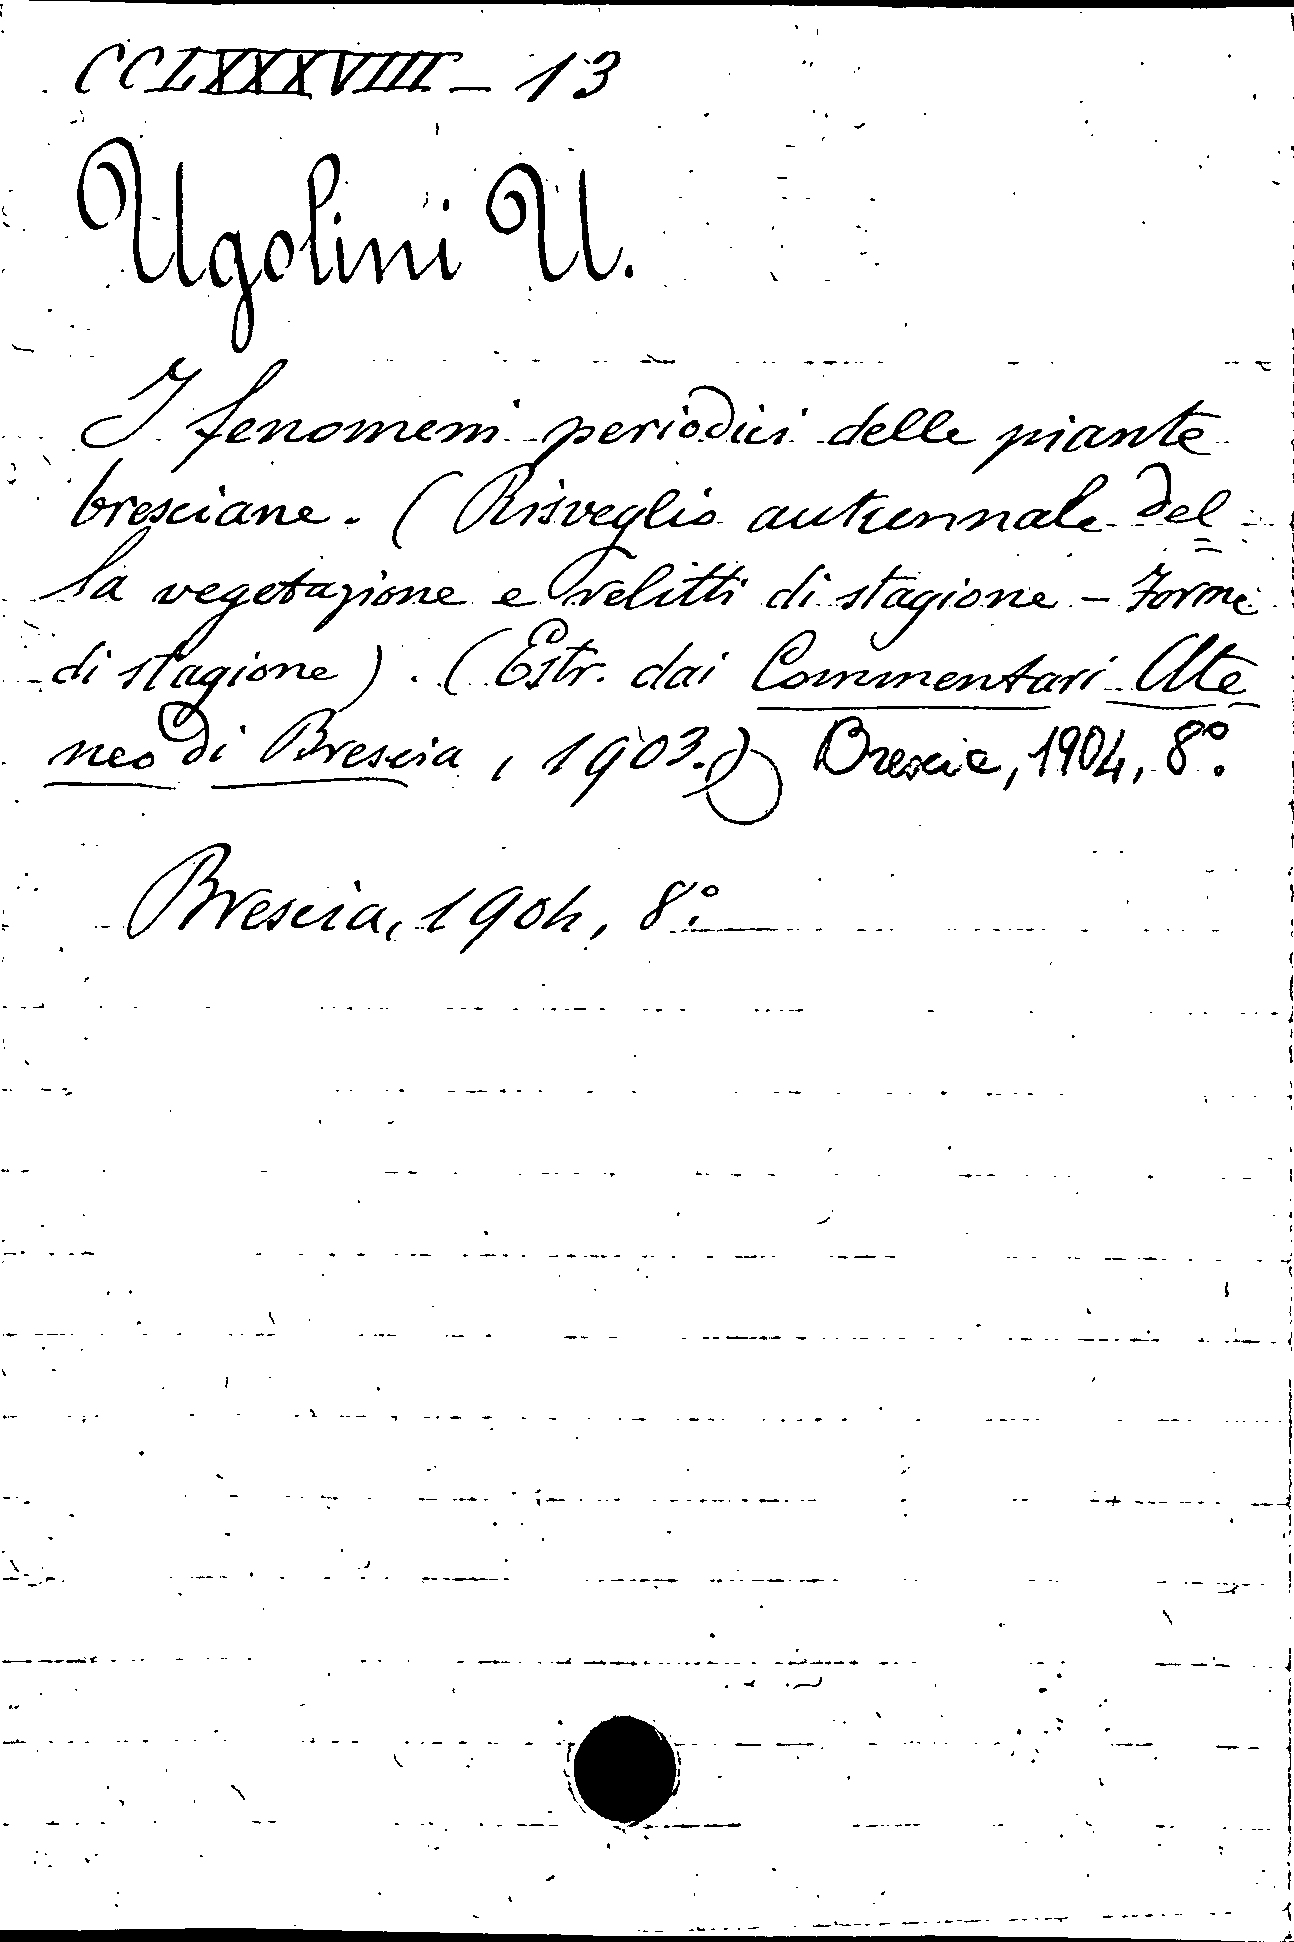 CCLXXXVIII - 13
Ugolini U.
I fenomeni periodici delle piante
bresciane. (Risveglio autunnale del
la vegetazione e relitti di stagione - Forme
di stagione). (Estr. dai Commentari Ate
neo di Brescia, 1903.) Brescia, 1904, 8°.
Brescia, 1904, 8°.